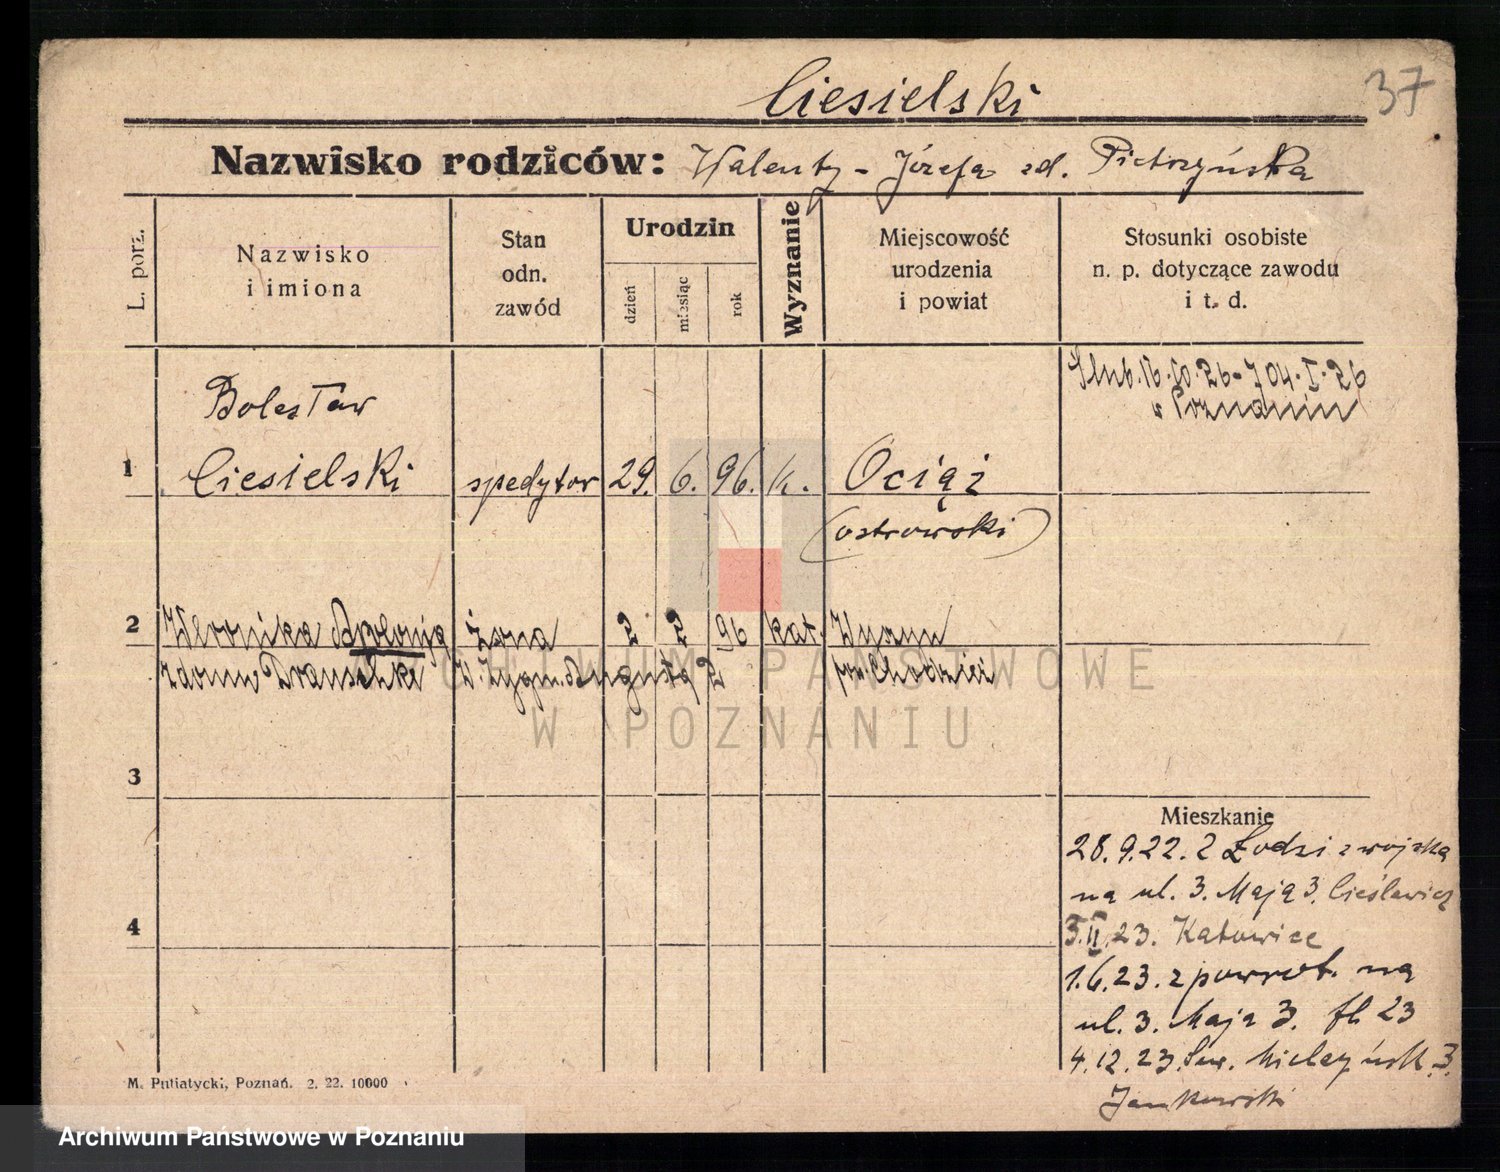 Ciesielski 37
Nazwisko rodziców: Walenty - Józefa zd. Pietrzyńska
L. porz.
Nazwisko
i imiona
Stan
odn.
zawód
Urodzin
dzień
miesiąc
rok
Wyznanie
Miejscowość
urodzenia
i powiat
Stosunki osobiste
n. p. dotyczące zawodu
i t. d.
Ślub. 16.10.26
w Poznaniu
Bolesław
1 Ciesielski spedytor 29. 6. 96. k. Ociąż
(ostrowski)
2 Weronika żona 2 2 96 kat.
zdomu Drauschke pow. Chodzież
ARCHIWUM PAŃSTWOWE
W POZNANIU
3
Mieszkanie
28.9.22. z Łodzi z wojska
na ul. 3. Maja 3. Cieślewicz
4 3.II.23. Katowice
1.6.23. z powrot. na
ul. 3. Maja 3. 23
4.12.23. Sew. Mielżyńsk. 3.
Jankowski
M. Putiatycki, Poznań. 2. 22. 10000
Archiwum Państwowe w Poznaniu